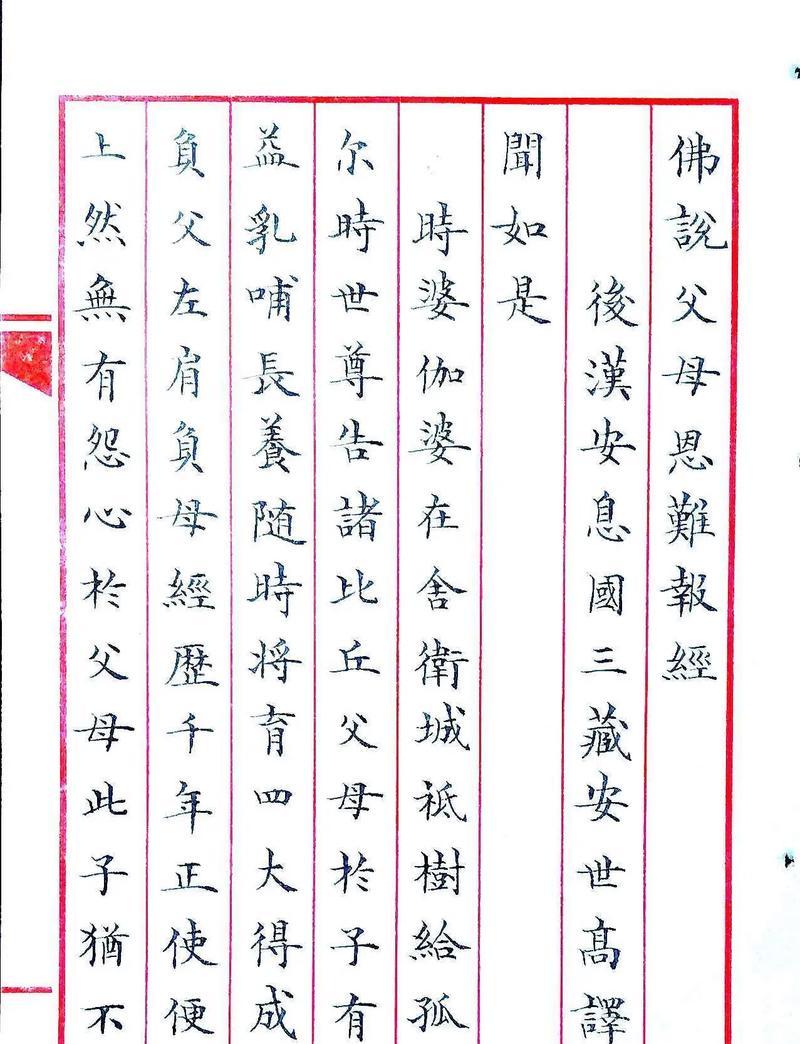 佛說父母恩難報經
後漢安息國三藏安世高譯
聞如是
時婆伽婆在舍衛城祇樹給孤
尔時世尊告諸比丘父母於子有
益乳哺長養随時将育四大得成
負父左肩負母經歷千年正使便
上然無有怨心於父母此子猶不